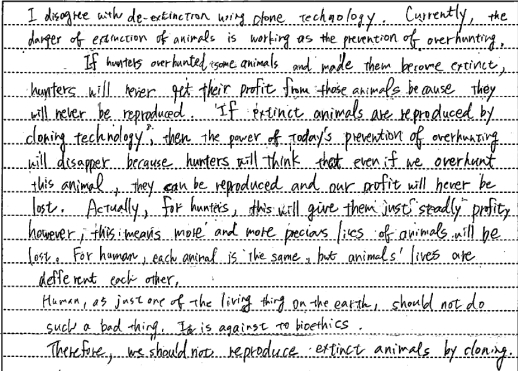 I disagree with de-extinction using clone technology. Currently, the
danger of extinction of animals is working as the prevention of overhunting.
If hunters overhunted some animals and made them become extinct,
hunters will never get their profit from those animals because they
will never be reproduced. "If extinct animals are reproduced by
cloning technology", then the power of today's prevention of overhunting
will disapper because hunters will think that even if we overhunt
this animal, they can be reproduced and our profit will never be
lost. Actually, for hunters, this will give them just "steadly" profit,
however, this means more and more precius lives of animals will be
lost. For human, each animal is the same, but animals' lives are
defferent each other.
Human, as just one of the living thing on the earth, should not do
such a bad thing. It is against to bioethics.
Therefore, we should not reproduce extinct animals by cloning.